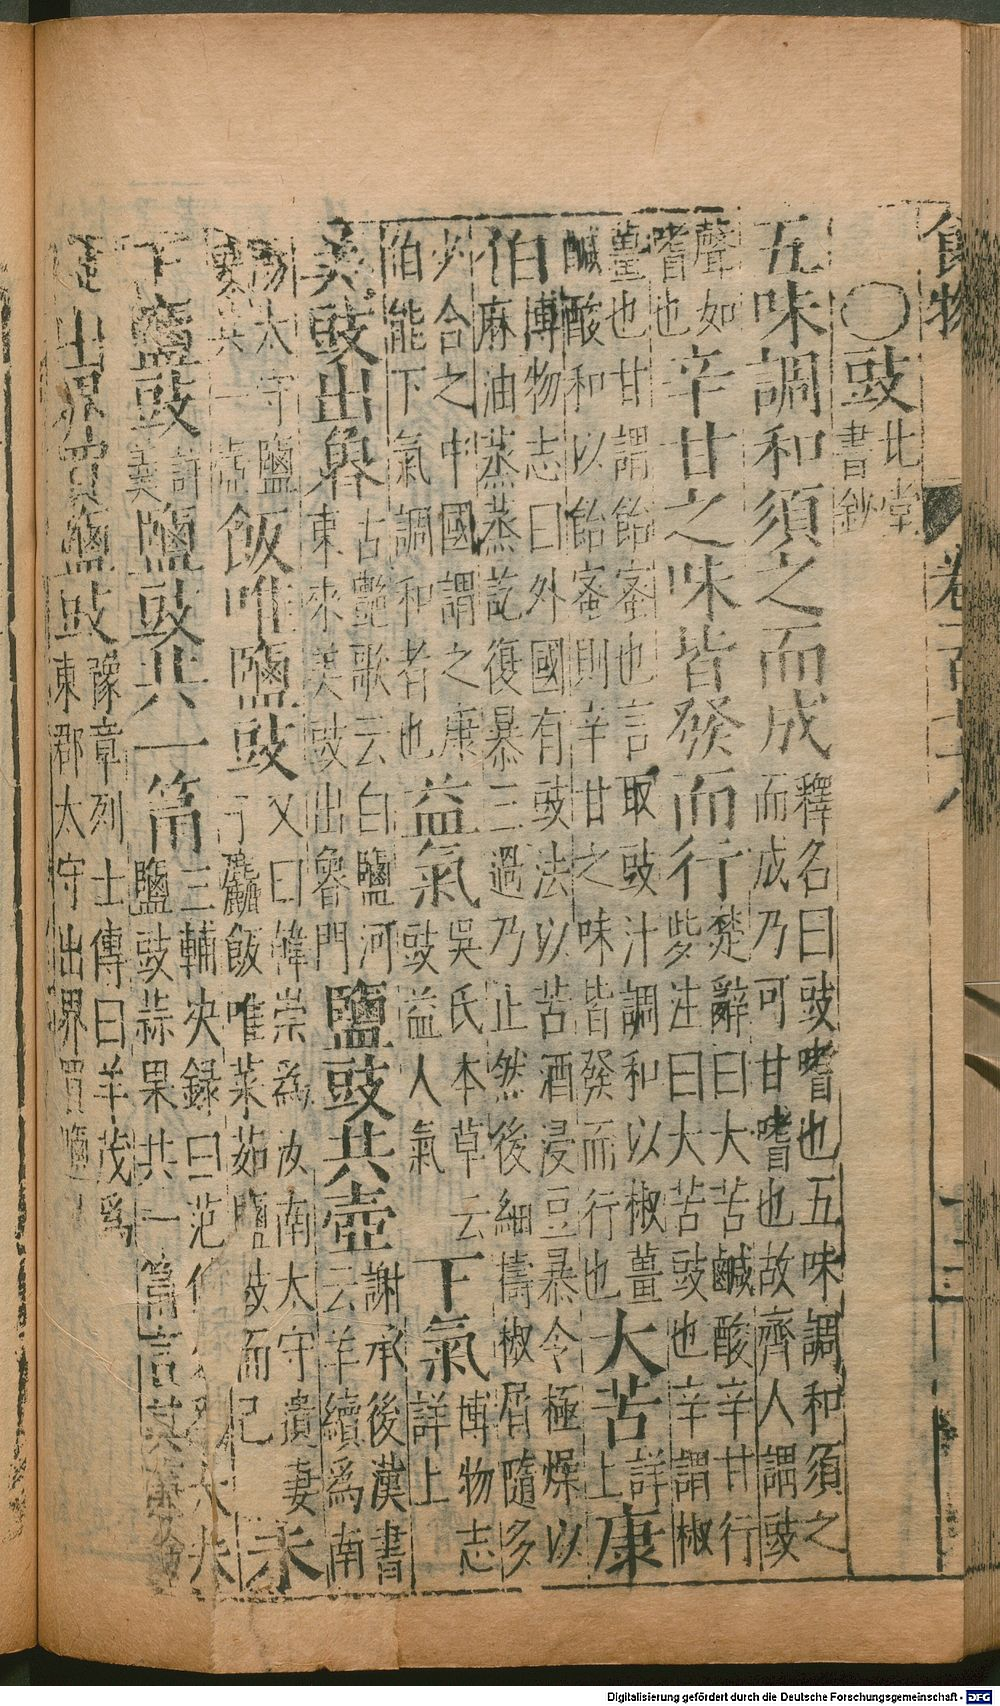 食物
卷一百
十三
〇豉北堂書鈔
五味調和須之而成釋名曰豉嗜也五味調和須之而成乃可甘嗜也故齊人謂豉
聲如嗜也辛甘之味皆發而行楚辭曰大苦鹹酸辛甘行些注曰大苦豉也辛謂椒
薑也甘謂飴蜜也言取豉汁調和以椒薑鹹酸和以飴蜜則辛甘之味皆發而行也大苦詳上康
伯博物志曰外國有豉法以苦酒浸豆暴令極燥以麻油蒸蒸訖復暴三過乃止然後細擣椒屑隨多
少合之中國謂之康伯能下氣調和者也益氣吳氏本草云豉益人氣下氣博物志詳上
美豉出魯古艷歌云白鹽河東來美豉出魯門鹽豉共壺謝承後漢書云羊續爲南
陽太守鹽豉共一壺飯唯鹽豉又曰韓崇爲汝南太守遺妻子麤飯唯菜茹鹽豉而已未
下鹽豉詳羹鹽豉共一筩三輔決録曰范鹽豉蒜果共一筩言其
出界買鹽豉豫章列士傳曰羊茂爲東郡太守出界買鹽
Digitalisierung gefördert durch die Deutsche Forschungsgemeinschaft - DFG